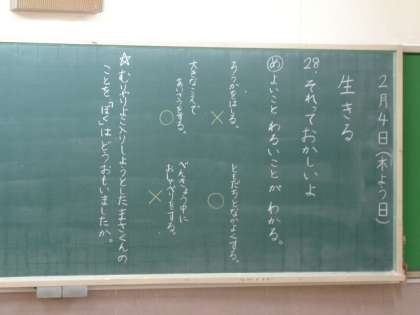 2月4日(木よう日)
生きる
28.それっておかしいよ
め よいこと わるいことが わかる。
ろうかをはしる。
×
ともだちとなかよくする。
○
大きなこえで
あいさつをする。
○
べんきょう中に
おしゃべりをする。
×
☆むりやりよこ入りしようとした まさくんの
ことを「ぼく」はどうおもいましたか。